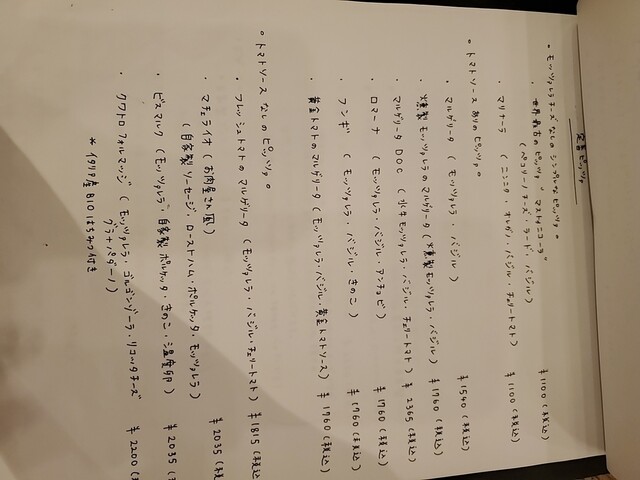 定番ピッツァ
○ モッツァレラチーズなしのシンプルなピッツァ ○
・世界最古のピッツァ "マストゥニコーラ"
(ペコリーノチーズ・ラード・バジル) ¥1100(税込)
・マリナーラ (ニンニク・オレガノ・バジル・チェリートマト) ¥1100(税込)
○ トマトソースありのピッツァ ○
・マルゲリータ (モッツァレラ・バジル) ¥1540(税込)
・燻製モッツァレラのマルゲリータ (燻製モッツァレラ・バジル) ¥1760(税込)
・マルゲリータDOC (水牛モッツァレラ・バジル・チェリートマト) ¥2365(税込)
・ロマーナ (モッツァレラ・バジル・アンチョビ) ¥1760(税込)
・フンギ (モッツァレラ・バジル・きのこ) ¥1760(税込)
・黄金トマトのマルゲリータ (モッツァレラ・バジル・黄金トマトソース) ¥1760(税込)
○ トマトソースなしのピッツァ ○
・フレッシュトマトのマルゲリータ (モッツァレラ・バジル・チェリートマト) ¥1815(税込)
・マチェライオ (お肉屋さん風)
(自家製ソーセージ・ローストハム・ポルケッタ・モッツァレラ) ¥2035(税込
・ビスマルク (モッツァレラ・自家製ポルケッタ・きのこ・温度卵) ¥2035(税
・クワトロフォルマッジ (モッツァレラ・ゴルゴンゾーラ・リコッタチーズ
グラナパダーノ) ¥2200(税
*イタリア産BIOはちみつ付き